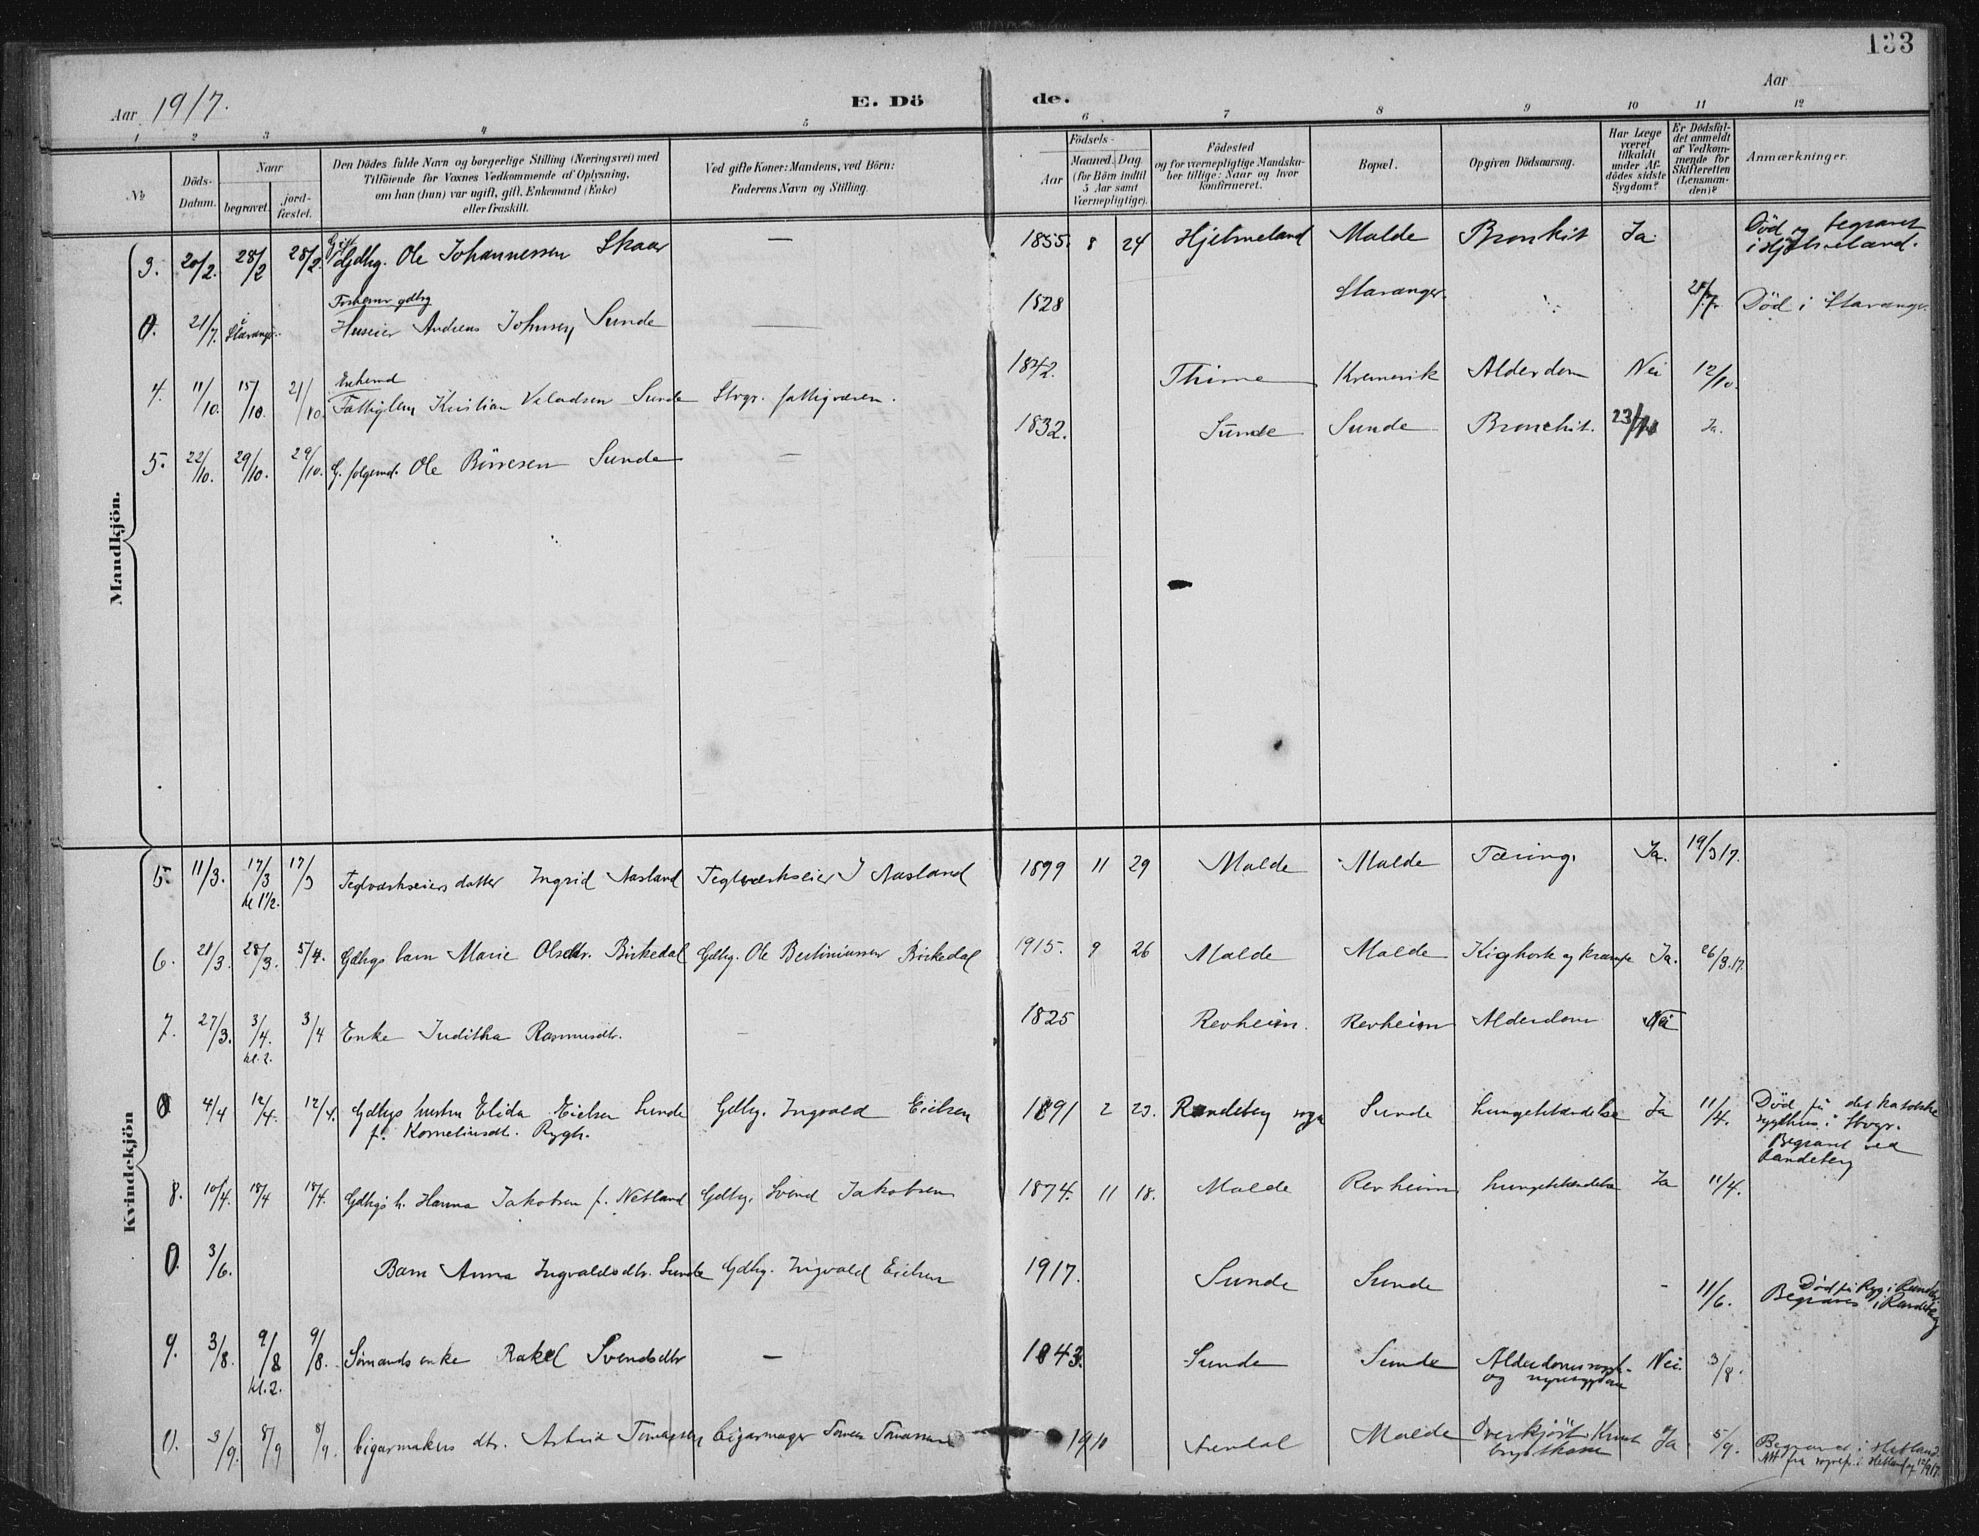 133
Aar 1917. E. Dö de. Aar
1 2 3 4 5 6 7 8 9 10 11 12
№
Döds-Datum.
Naar
begravet.
jord-fæstet.
Den Dödes fulde Navn og borgerlige Stilling (Næringsvei) med
Tilföiende for Voxnes Vedkommende af Oplysning,
om han (hun) var ugift, gift, Enkemand (Enke)
eller fraskilt.
Ved gifte Koner: Mandens, ved Börn:
Faderens Navn og Stilling.
Födsels-
Aar
Maaned. Dag.
(for Börn indtil
5 Aar samt
Værnepligtige).
Födested
og for værnepligtige Mandska-
ber tillige: Naar og hvor
konfirmeret.
Bopæl.
Opgiven Dödsaarsag.
Har Læge
været
tilkaldt
under Af-
dödes sidste
Sygdom?
Er Dödsfal-
det anmeldt
af Vedkom-
mende for
Skifteretten
(Lensman-
den)?
Anmærkninger.
Mandkjön.
3. 20/2. 28/2 28/2. Gift Gdbg. Ole Johannessen Skaar — 1855. 8 24 Hjelmeland Malde Bronkit Ja. Död og begravet
i Hjelmeland.
0. 21/7. i Stavanger. Forhenv. gdbg
Huseier Andreas Johnsen Sunde — 1828 Stavanger. 28/7. Död i Stavanger.
4. 11/10. 15/10. 21/10. Enkemd
Fattiglem Kristian Valadsen Sunde Stvgr. fattigvæsen. 1842. Thime Kremervik Alderdom Nei 12/10.
5. 22/10. 29/10. 29/10. G. folgemd. Ole Börresen Sunde — 1832. Sunde Sunde Bronchit. 23/10 Ja.
Kvindekjön
5. 11/3. 17/3 kl 1 1/2. 17/3 Teglværkseiers datter Ingrid Aasland Teglværkseier J Aasland 1899 11 29 Malde Malde Tæring. Ja. 19/3 17.
6. 21/3. 28/3. 5/4. Gdbgs barn Marie Olsdtr. Birkedal Gdbg. Ole Bertiniussen Birkedal 1915. 9 26 Malde Malde Kighoste og krampe Ja. 26/3.17.
7. 27/3. 3/4. kl. 2. 3/4 Enke Juditha Rasmusdtr. — 1825 Revheim. Revheim Alderdom Nei
0. 4/4 12/4. 12/4. Gdbgs hustru Elida Eielsen Sunde Gdbg. Ingvald Eielsen 1891 2 23. Randeberg sogn Sunde Lungebetændelse Ja 11/4. Död på det katolske
f. Korneliusdt. Rygh. sygehus i Stvgr.
Begravet ved
Randeberg
8. 10/4. 18/4 18/4. Gdbgs h. Hanna Jakobsen f. Netland Gdbg. Svend Jakobsen 1874. 11 18. Malde Revheim Lungebetændelse Ja 11/4.
0. 3/6. Barn Anna Ingvaldsdtr. Sunde Gdbg. Ingvald Eielsen 1917. Sunde Sunde - 11/6. Död på Ryg i
Begraves i Randeberg
9. 3/8. 9/8 kl. 2. 9/8. Sömands enke Rakel Svendsdtr — 1843. Sunde Sunde Alderdomssvagh.
og nyresygdom Nei. 3/8.
0. 3/9. 8/9 8/9. Cigarmakers dtr. Astrid Cigarmager 1910 Malde Overkjört Knust
brystkasse Ja 5/9. Begravet i Hetland.
Att fra sognepr. i Hetland 12/9 17.